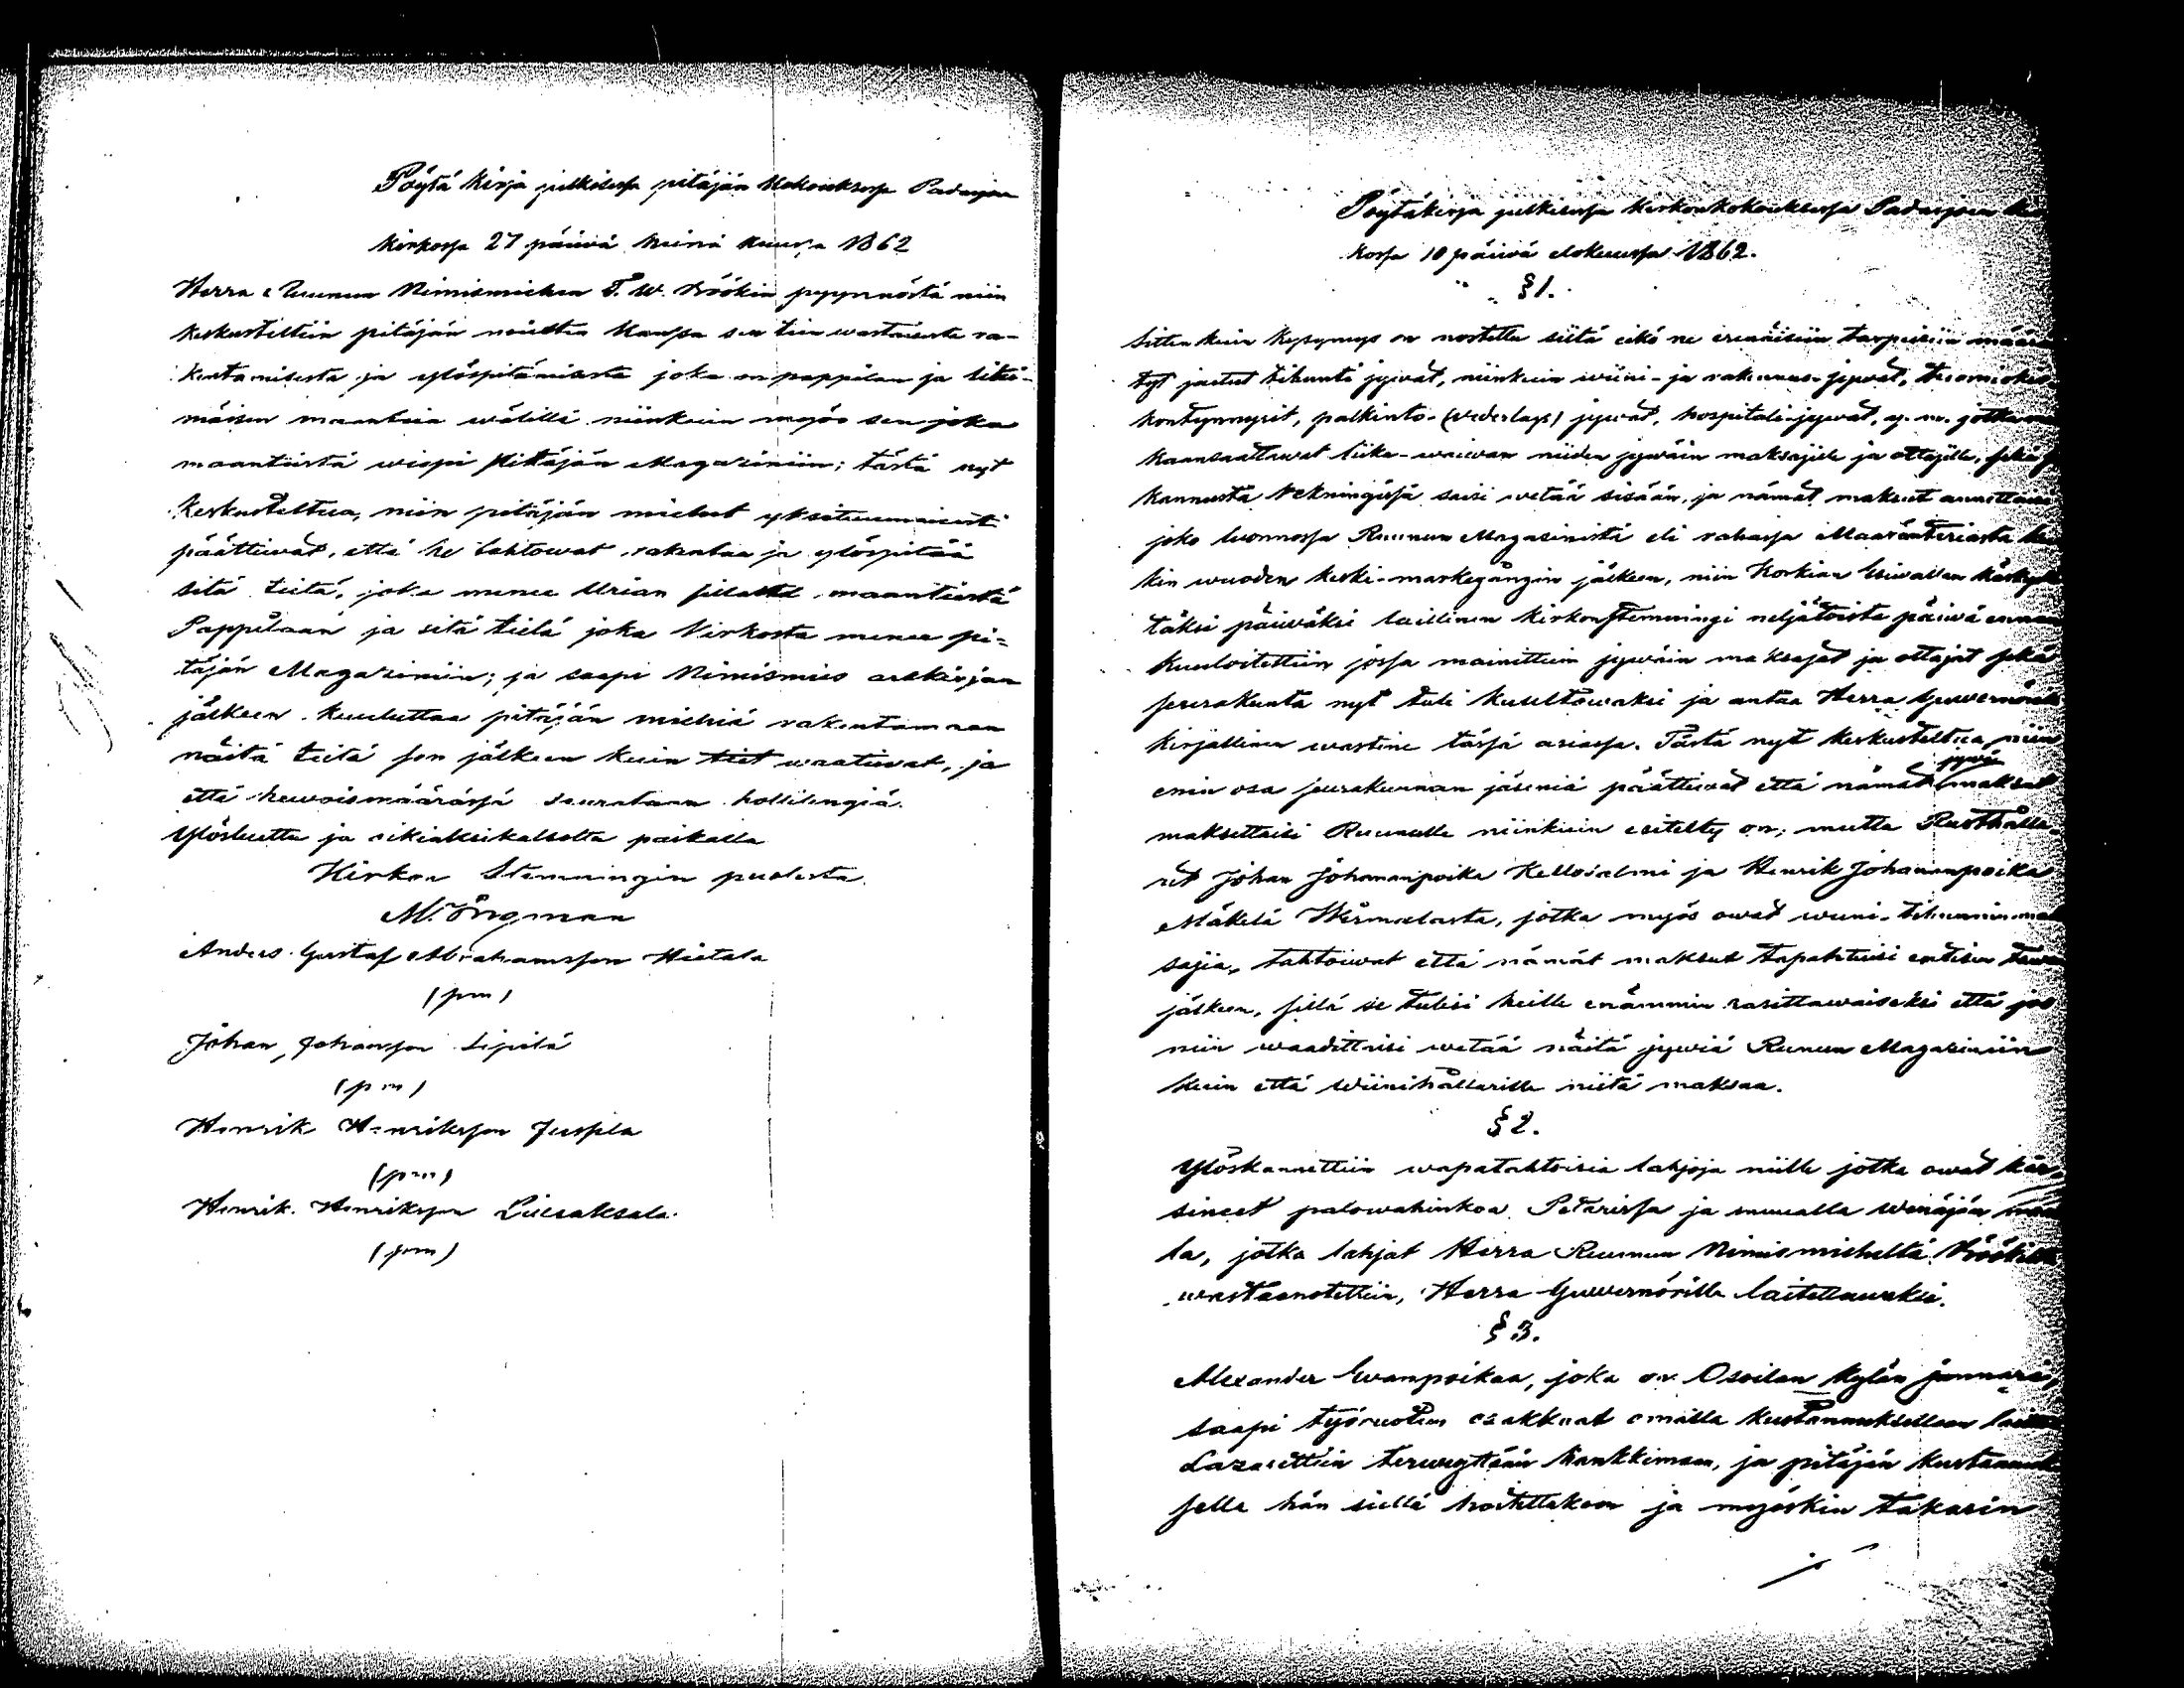 Pöytä Kirja julkisessa pitäjän Kokouksessa Padasjoen
Kirkossa 27 päiwä heinä kuussa 1862
Herra Ruunun Nimismiehen T. W. Böökin pyynnöstä niin
keskusteltiin pitäjän miesten kanssa sen tien wastaisesta ra-
kentamisesta ja ylöspitämisestä joka on pappilan ja likei-
mäisen maantien wälillä niinkuin myös sen joka
maantiestä wiepi Pitäjän Magasiniin; tästä nyt
keskusteltua, niin pitäjän miehet yksituumaisesti
päättiwät, että he tahtowat rakentaa ja ylöspitää
sitä tietä, joka menee Urian sillalta maantiestä
Pappilaan ja sitä tietä joka Kirkosta menee pi-
täjän Magasiniin; ja saapi Nimismies asekirjan
jälkeen kuuluttaa pitäjän miehiä rakentamaan
näitä teitä sen jälkeen kuin tiet waatiiwat, ja
että hewoismäärässä seurataan hollilengiä.
Ylösluettu ja oikiaksikatsottu paikalla
Kirkon Stemningin puolesta
M. Öngman
Anders Gustaf Abrahamsson Hietala
(pm)
Johan Johansson Sipilä
(pm)
Henrik Henriksson Juspla
(pm)
Henrik Henriksson Liesaksala
(pm)
Pöytäkirja julkisessa Kirkonkokouksessa Padasjoen
kossa 10 päiwä elokuussa 1862.
§ 1.
Sitten kuin kysymys on nostettu siitä eikö ne erinäisiin tarpeisiin
tyt jaetut tihunti jywät, niinkuin wiini- ja rakennus-jywät,
kontynnyrit, palkinto-(wederlags) jywät, hospitali-jywät, y. m. jotka
kaansaattawat liika-waiwan niiden jywäin maksajille ja ottajille, sekä
kannusta Rekningissä saisi wetää sisään, ja nämät maksut annettaisi
joko luonnossa Ruunun Magasinistä eli rahassa Maaränteriästa
kin wuoden keski-markegångin jälkeen, niin Korkian Esiwallan
täksi päiwäksi laillinen Kirkonstemningi neljätoista päiwä ennen
kuuloitettiin jossa mainittuin jywäin maksajat ja ottajat sekä
seurakunta nyt tuli kuultawaksi ja antaa Herra Guwernörille
kirjallinen wastine tässä asiassa. Tästä nyt keskusteltua, niin
enin osa seurakunnan jäseniä päättiwät että nämät jywän maksut
maksettaisi Ruunulle niinkuin esitelty on; mutta Rusthålla-
rit Johan Johananpoika Kellosalmi ja Henrik Johananpoika
Mäkelä Wirmaelasta, jotka myös owat wiini-tihunnin
sajia, tahtoiwat että nämät maksut tapahtuisi entisen tawan
jälkeen, sillä se tulisi heille enämmin rasittawaiseksi että jos
niin waadittaisi wetää näitä jywiä Ruunun Magasiniin
kuin että wiinihållarille niitä maksaa.
§ 2.
Ylöskannettiin wapatahtoisia lahjoja niille jotka owat kär-
sineet palowahinkoa Petarissa ja muualla wenäjän
la, jotka lahjat Herra Ruunun Nimismieheltä Böökiltä
wastaanotettiin, Herra Guwernörille laitettawaksi.
§ 3.
Alexander Ewanpoikaa, joka on Osoilan kylän
saapi työruotun osakkaat omalla kustannuksellaan
Lazarettiin terweyttään hankkimaan, ja pitäjän kustannuk-
sella hän siellä hoitettakoon ja myöskin takasin